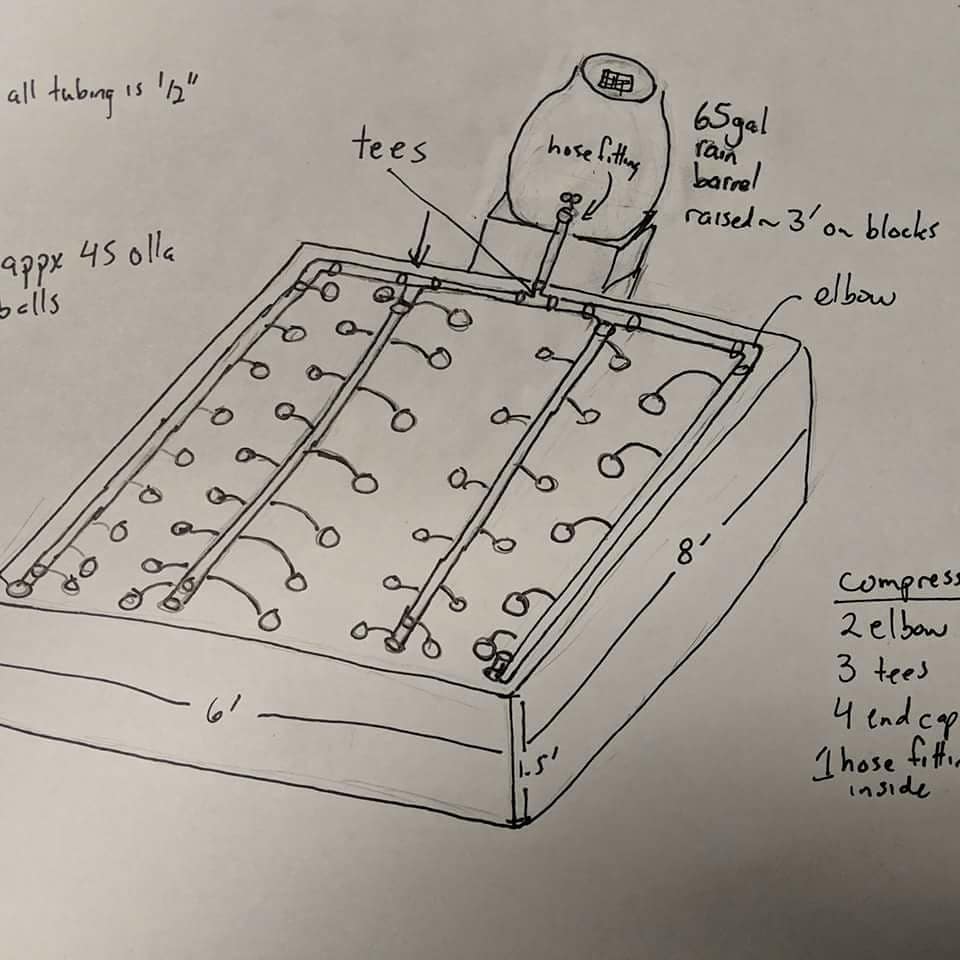 all tubing is 1/2"
tees
hose fitting
65gal
rain
barrel
raised ~ 3' on blocks
appx 45 olla
balls
elbow
8'
6'
1.5'
compress
2 elbow
3 tees
4 end cap
1 hose fitti
inside